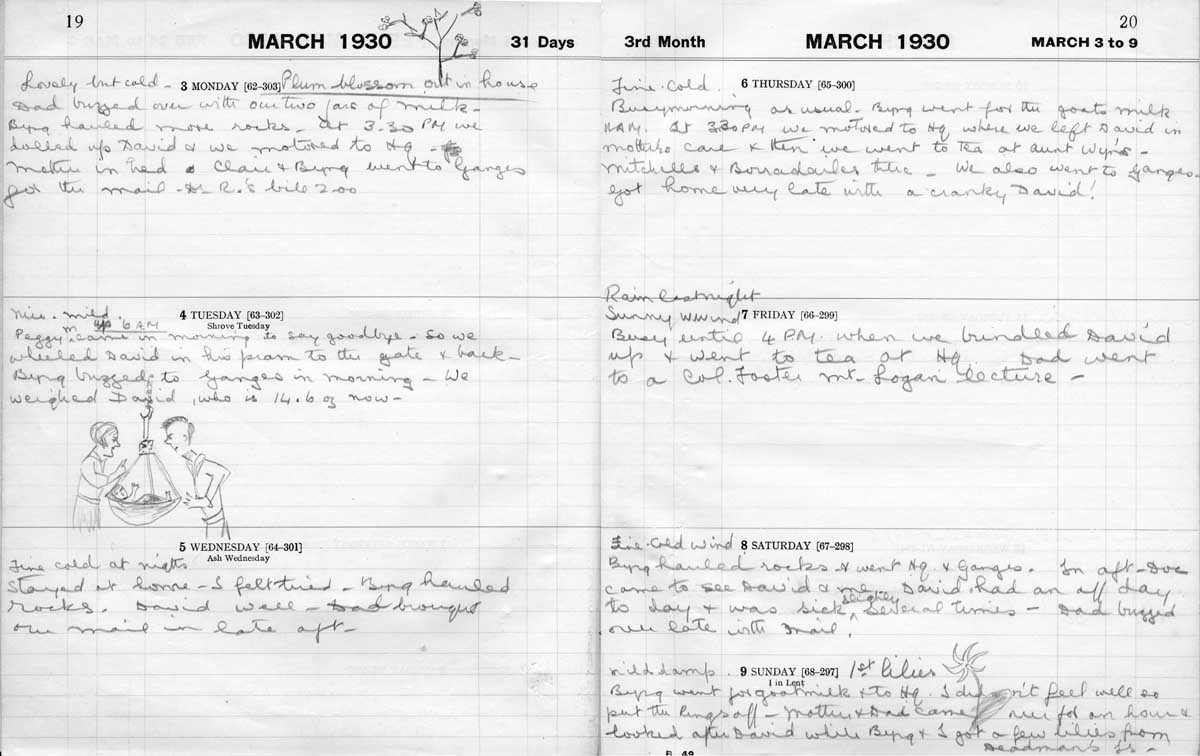 19
MARCH 1930 31 Days
Lovely but cold - 3 MONDAY [62-303] Plum blossom out in house
Dad buzzed over with our two jars of milk -
Byng hauled more rocks - at 3.30 PM we
dolled up David & we motored to Hq -
mother in bed & Clair & Byng went to Ganges
for the mail - Dr R.'s bill 2.00
nice. mild. 4 TUESDAY [63-302]
up 6 A.M Shrove Tuesday
Peggy came in morning to say goodbye - So we
wheeled David in his pram to the gate & back -
Byng buzzed to Ganges in morning - We
weighed David, who is 14.6 oz now -
5 WEDNESDAY [64-301]
Ash Wednesday
Fine cold at nights
Stayed at home - I felt tired - Byng hauled
rocks. David well - Dad brought
our mail in late aft -
20
3rd Month MARCH 1930 MARCH 3 to 9
Fine. Cold. 6 THURSDAY [65-300]
Busy morning as usual. Byng went for the goats milk
11 AM. At 3.30 PM we motored to Hq where we left David in
mothers care & then we went to tea at aunt Wyn's -
Mitchells & Borradailes there - We also went to Ganges -
Got home very late with a cranky David!
Rain last night
Sunny W. Wind 7 FRIDAY [66-299]
Busy until 4 PM. when we bundled David
up & went to tea at Hq. Dad went
to a Col. Foster Mt. Logan lecture -
Fine. Cold wind 8 SATURDAY [67-298]
Byng hauled rocks & went Hq. & Ganges. In aft - Dve
came to see David & me. David had an off day
to day & was sick slightly several times - Dad buzzed
over late with mail.
mild damp. 9 SUNDAY [68-297] 1st lilies
1 in Lent
Byng went for goat milk & to Hq. I didn't feel well so
put the Kings off - Mother & Dad came over for an hour &
looked after David while Byng & I got a few lilies from
Deadman's
B 49